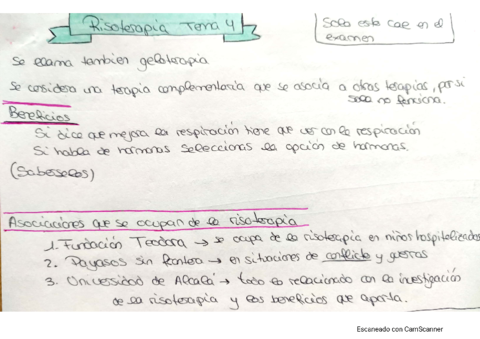 Risoterapia Tema 4
Solo este cae en el
examen
Se llama tambien geloterapia
Se considera una terapia complementaria que se asocia a otras terapias, por si
sola no funciona.
Beneficios
Si dice que mejora la respiración tiene que ver con la respiración
Si habla de hormonas seleccionas la opción de hormonas.
(Saberselos)
Asociaciones que se ocupan de la risoterapia
1. Fundación Teodora → se ocupa de la risoterapia en niños hospitalizados
2. Payasos sin frontera → en situaciones de conflicto y guerras
3. Universidad de Alcalá → todo lo relacionado con la investigación
de la risoterapia y los beneficios que aporta.
Escaneado con CamScanner